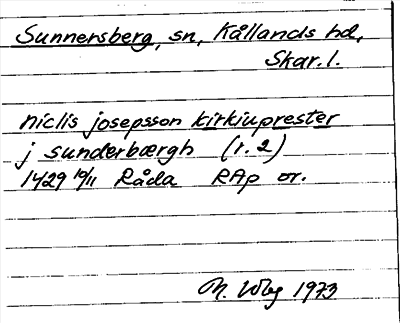 Sunnersberg, sn, Kållands hd,
Skar. l.
niclis josepsson kirkiuprester
j sunderbærgh (r. 2)
1429 10/11 Råda RAp or.
1973